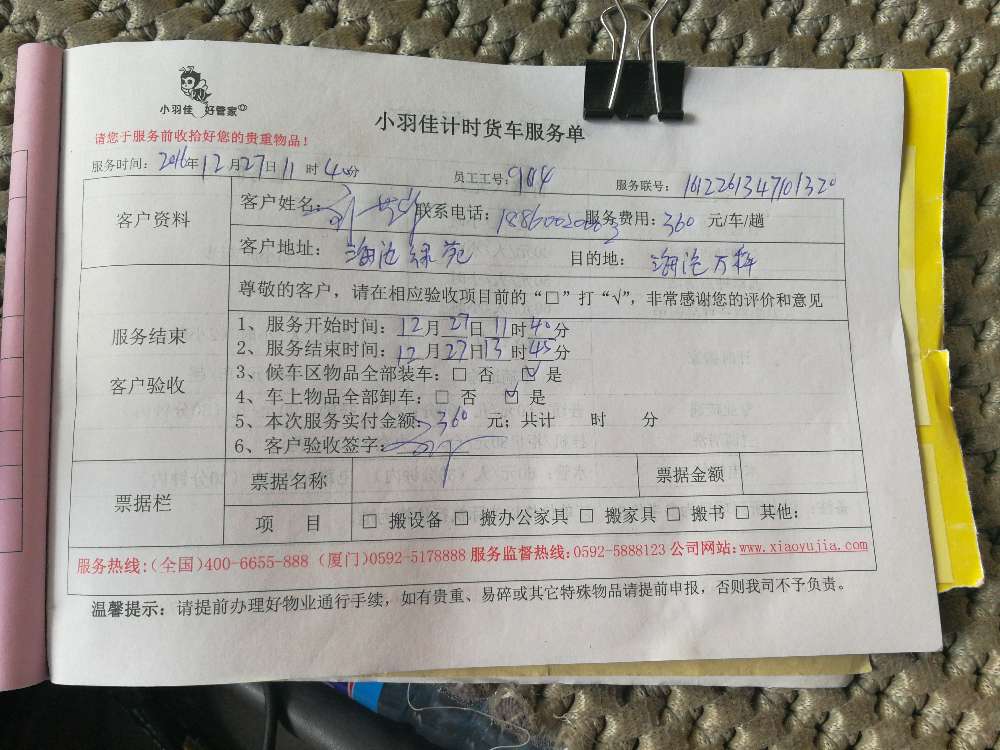 小羽佳 好管家
小羽佳计时货车服务单
请您于服务前收拾好您的贵重物品！
服务时间：2016年12月27日11时40分 员工工号：904 服务联号：1612261347101320
客户资料
客户姓名： 联系电话： 服务费用：360 元/车/趟
客户地址：海沧绿苑 目的地：海沧万科
服务结束
客户验收
尊敬的客户，请在相应验收项目前的“□”打“√”，非常感谢您的评价和意见
1、服务开始时间：12月27日11时40分
2、服务结束时间：12月27日13时45分
3、候车区物品全部装车：□ 否 ☑ 是
4、车上物品全部卸车：□ 否 ☑ 是
5、本次服务实付金额：360 元；共计 时 分
6、客户验收签字：
票据栏
票据名称 票据金额
项 目 □ 搬设备 □ 搬办公家具 □ 搬家具 □ 搬书 □ 其他：
服务热线：（全国）400-6655-888（厦门）0592-5178888 服务监督热线：0592-5888123 公司网站：www.xiaoyujia.com
温馨提示：请提前办理好物业通行手续，如有贵重、易碎或其它特殊物品请提前申报，否则我司不予负责。